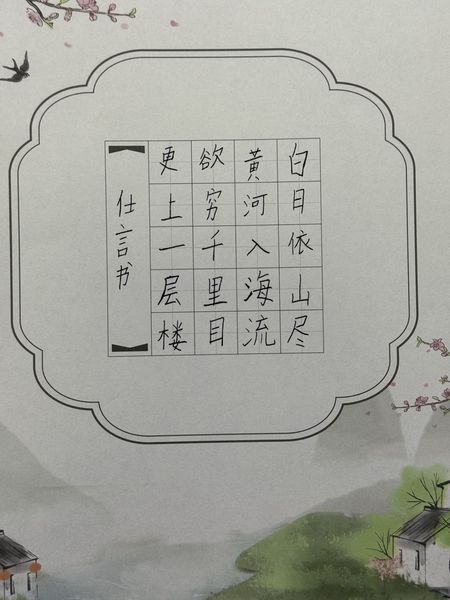 白日依山尽
黄河入海流
欲穷千里目
更上一层楼
仕言书